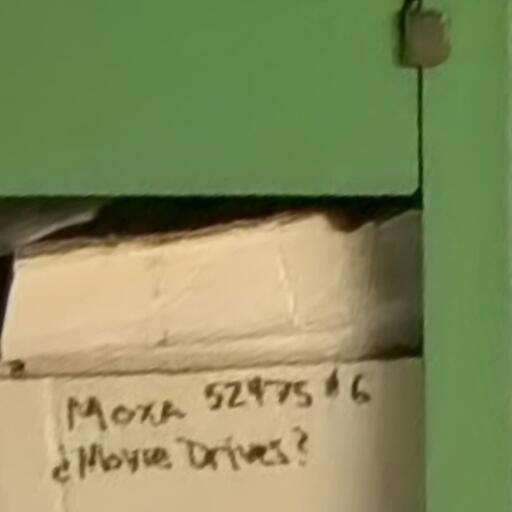 Moxa 52475 #6
¿Movie Drives?